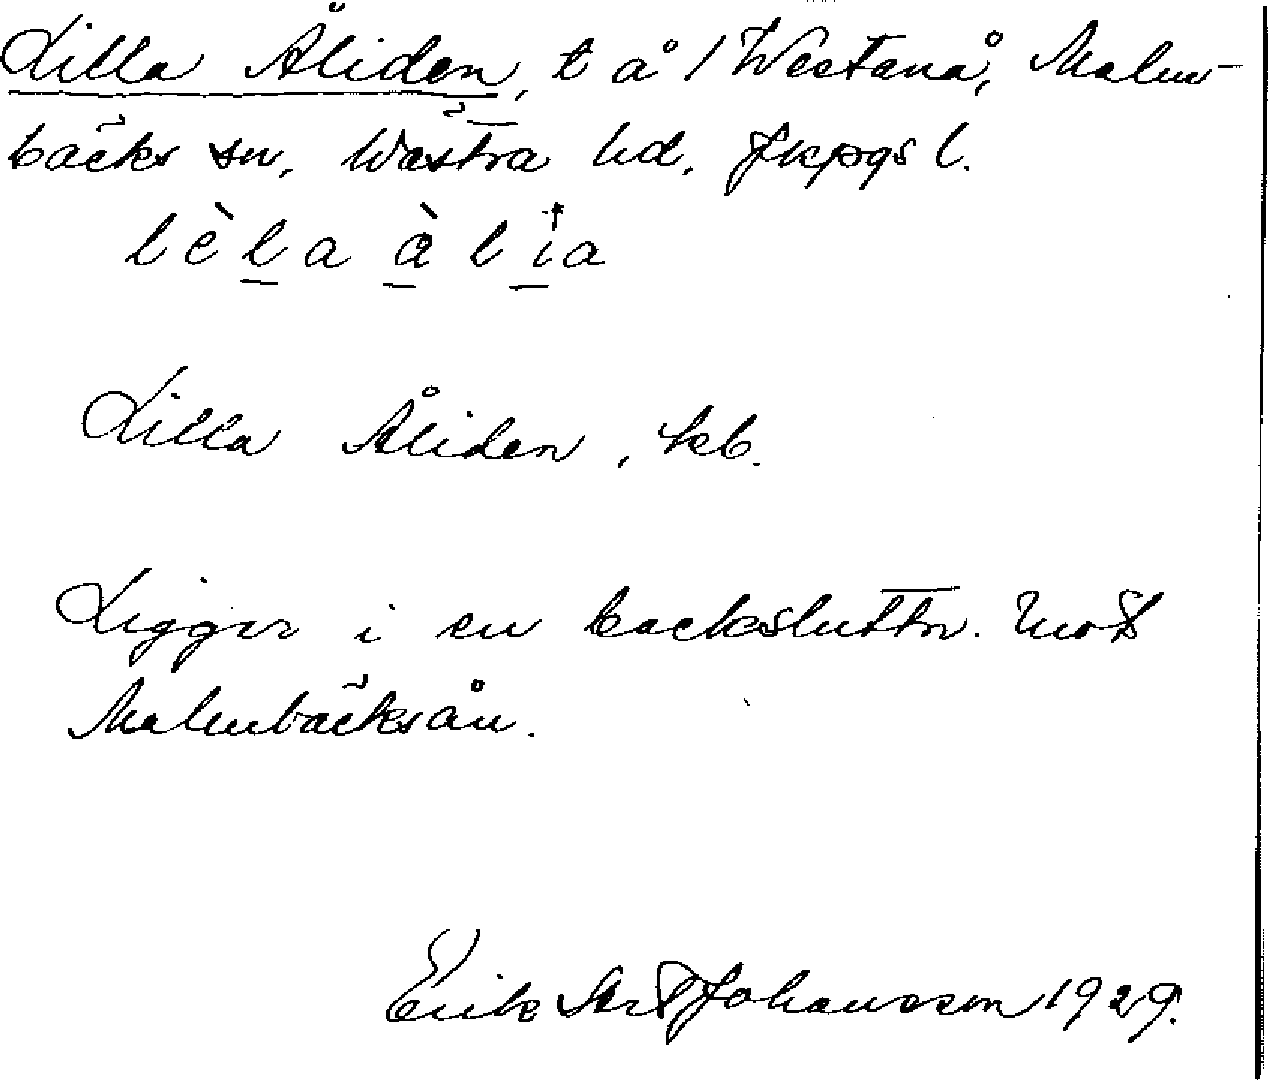 Lilla Åliden, t å 1 Westanå, Malm-
bäcks sn, Västra hd, Jkpgs l.
lèla àlia
Lilla Åliden, kb.
Ligger i en backsluttn. mot
Malmbäcksån.
Erik Johansson 1929.